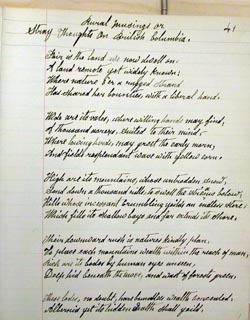 Rural Musings or
41
Stray Thoughts On British Columbia.
Fair is the land we now dwell on.
A land remote yet widely known;
Where nature for a rugged strand
Has shared her bounties, with a liberal hand.
Wide are its vales, where willing hands may find,
A thousand ways, suited to their mind.
Where loving herds, may greet the early morn,
And fields resplendent wave with yellow corn.
High are its mountains, whose unbidden snow,
Send down a thousand rills, to swell the streams below.
Hills whose incessant crumbling yields an endless store
Which fills its shallow bays and far extends its shore.
Their downward rush is natures kindly plan,
To place each mountains wealth within the reach of man,
Rich are its lodes by human eyes unseen,
Deep hid beneath the moss, and mist of forests green,
These lodes, no doubt, have boundless wealth concealed.
yet its hidden shall yield,